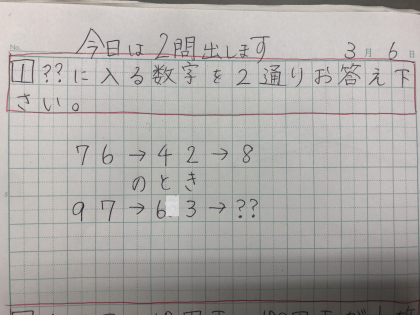 今日は2問出します 3月6日
1 ??に入る数字を2通りお答え下
さい。
76→42→8
のとき
97→63→??